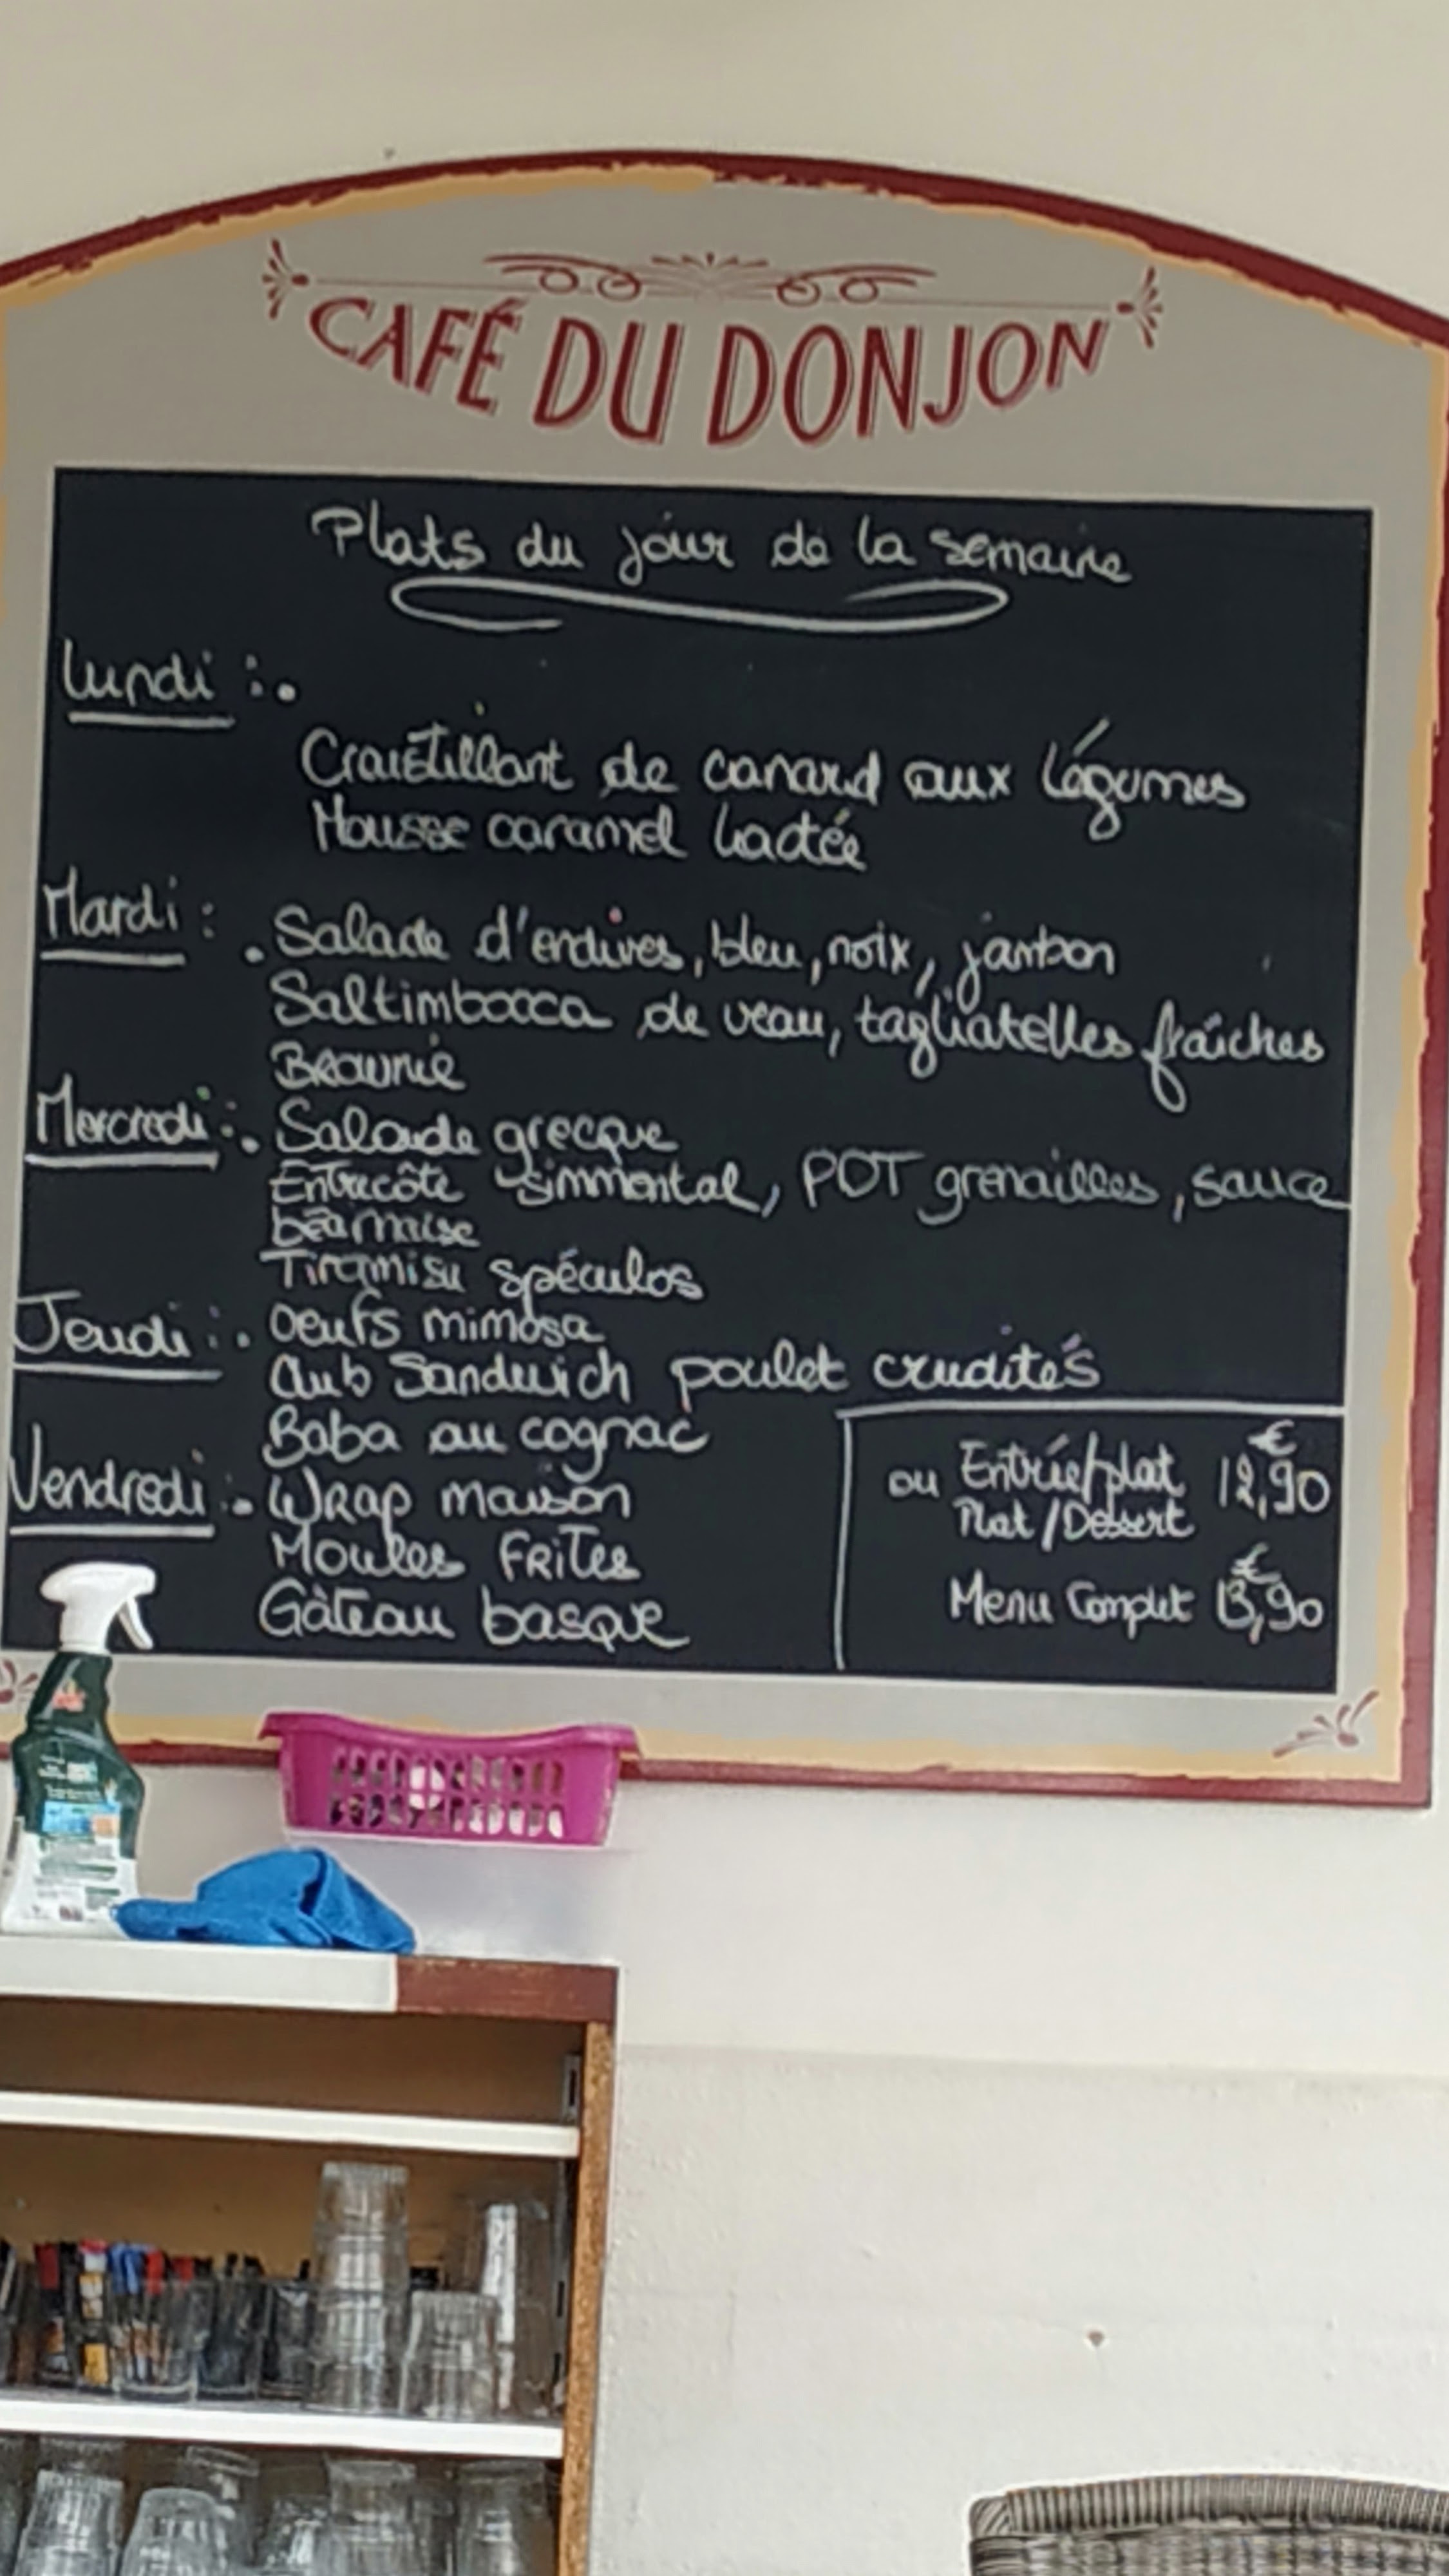 CAFÉ DU DONJON
Plats du jour de la semaine
Lundi :.
Croustillant de canard aux légumes
Mousse caramel lactée
Mardi : . Salade d'endives, bleu, noix, jambon
Saltimbocca de veau, tagliatelles fraîches
Brownie
Mercredi :. Salade grecque
Entrecôte simmental, PDT grenailles, sauce
béarnaise
Tiramisu spéculos
Jeudi :. Oeufs mimosa
Club Sandwich poulet crudités
Baba au cognac
Vendredi :. Wrap maison
Moules Frites
Gâteau basque
ou Entrée/plat 12,90 €
Plat/Dessert
Menu Complet 13,90 €